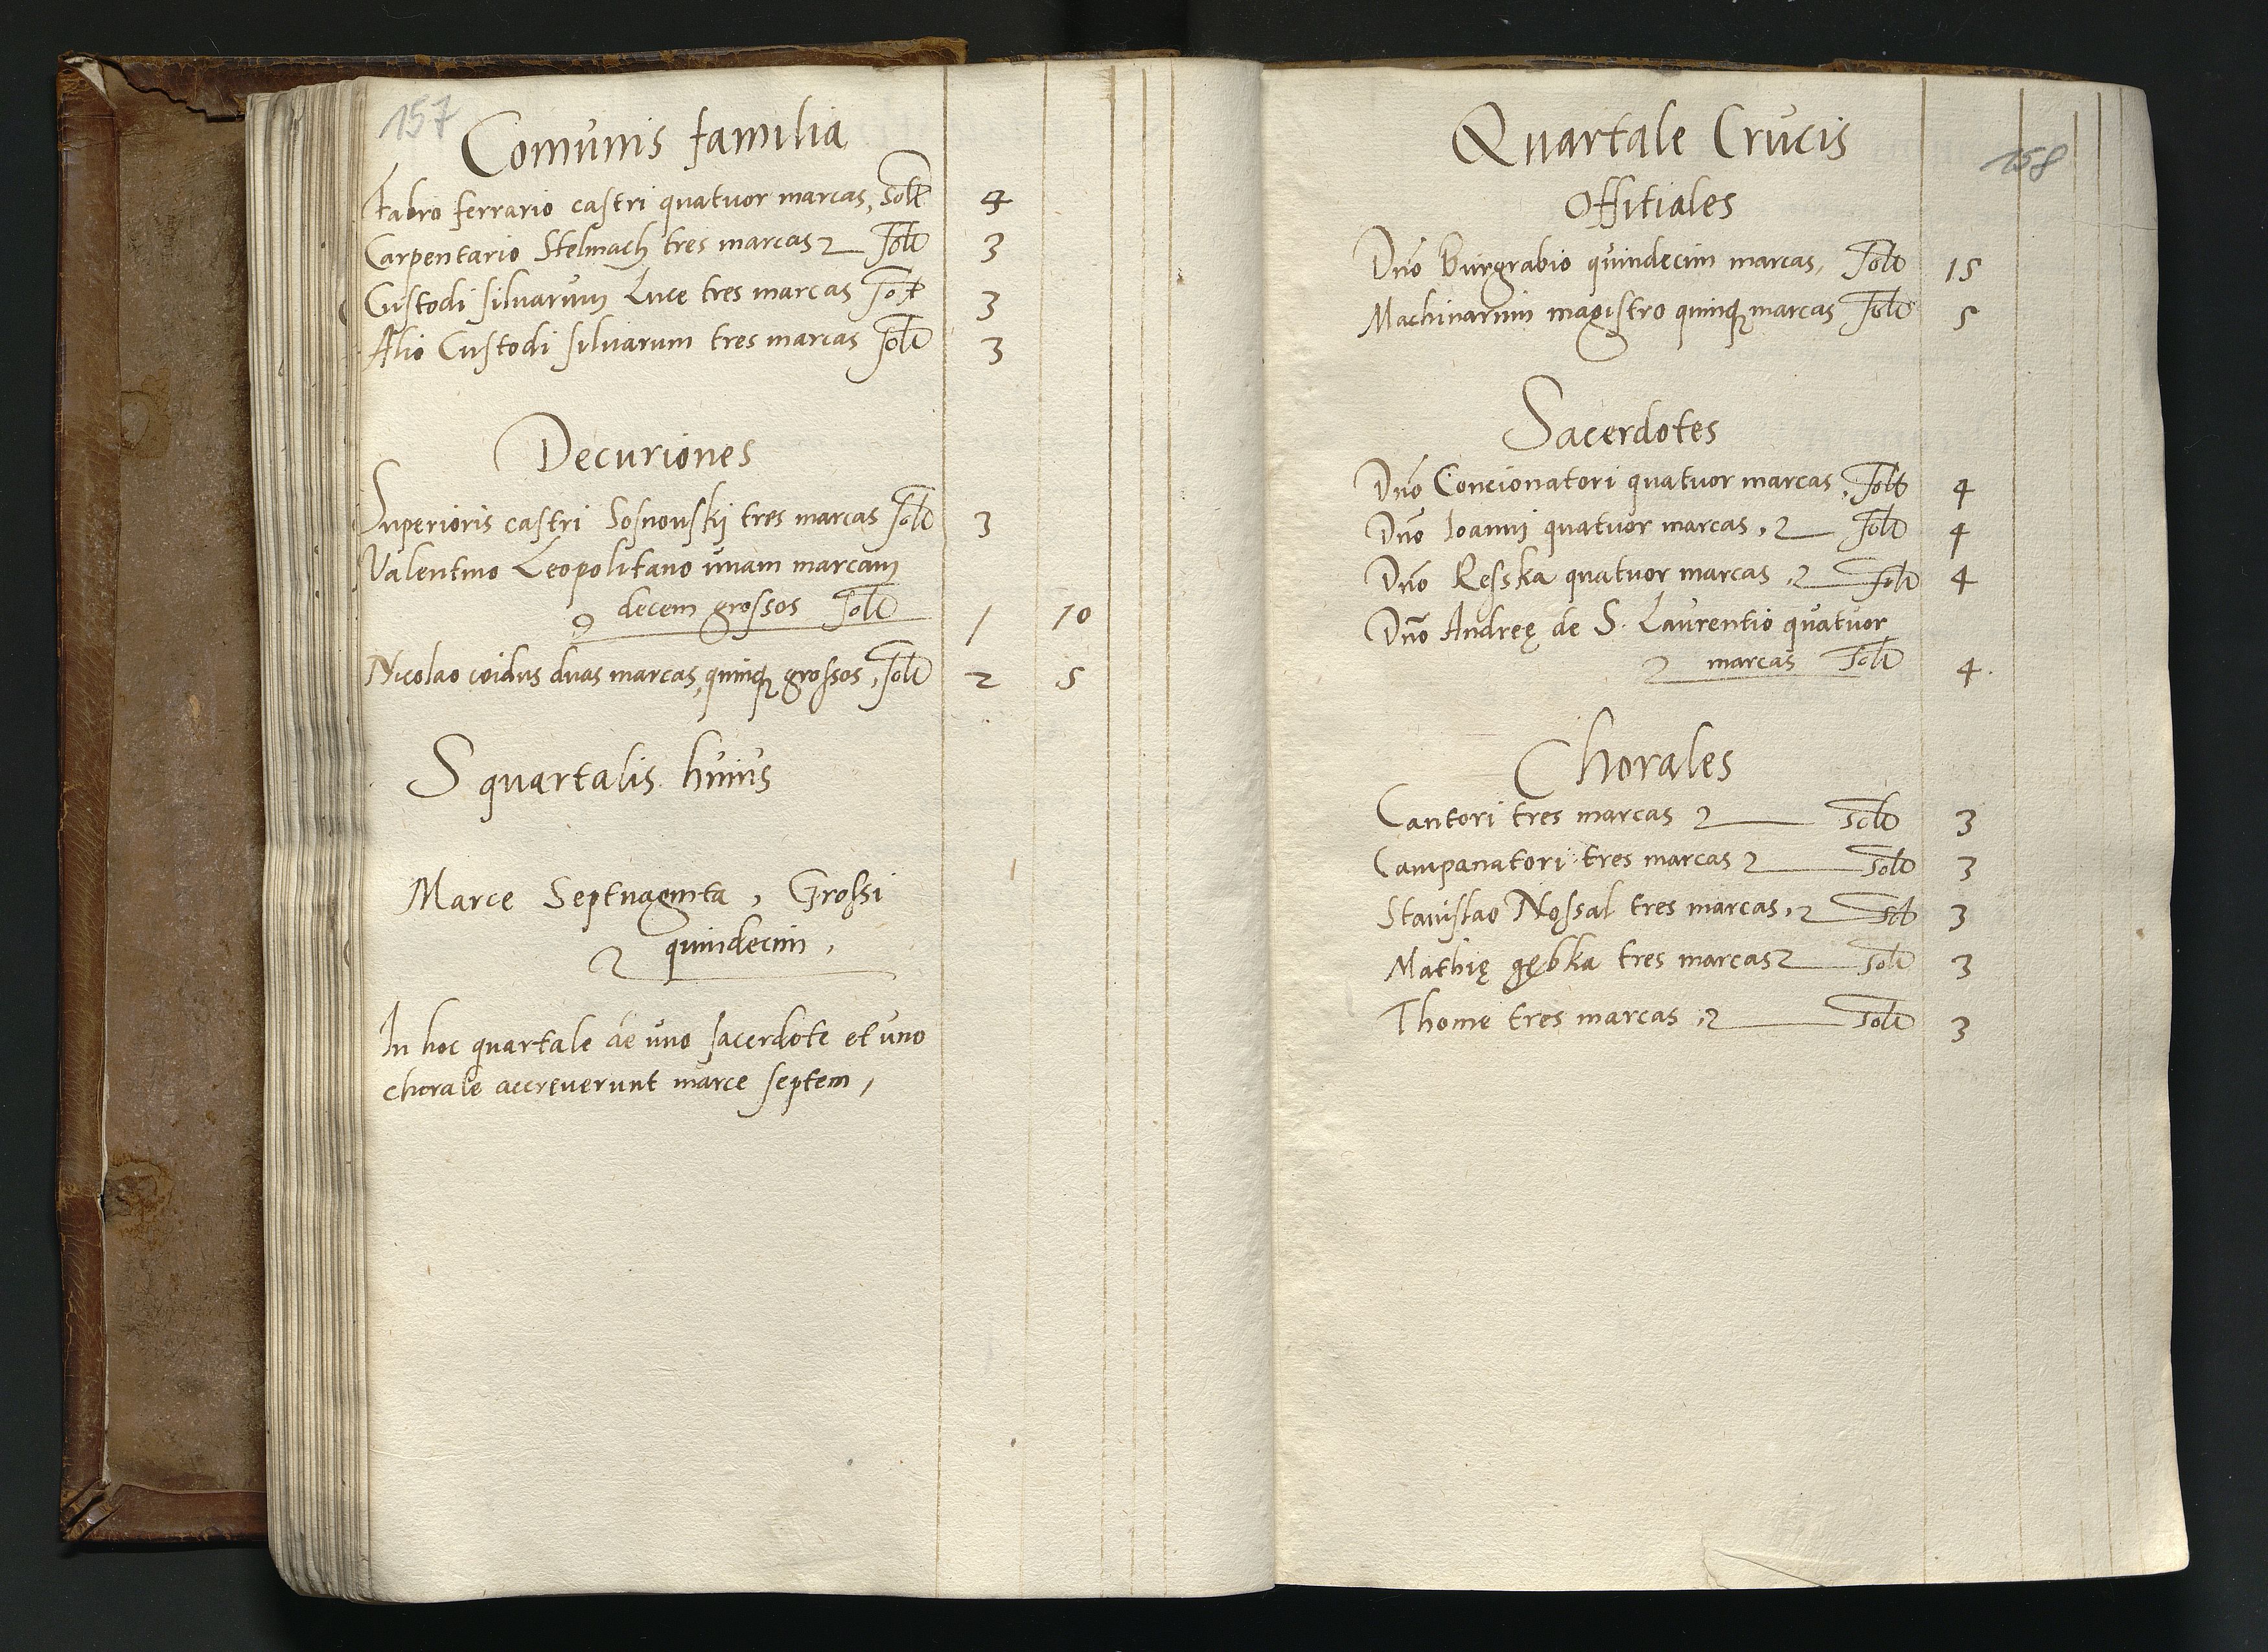 157
Comunis familia
Fabro ferrario castri quatuor marcas, solt 4
Carpentario Stelmach tres marcas solt 3
Custodi siluarum Luce tres marcas solt 3
Alio Custodi siluarum tres marcas solt 3
Decuriones
Superioris castri Sosnouskj tres marcas solt 3
Valentino Leopolitano unam marcam
decem grossos solt 1 10
Nicolao duas marcas, quinq grossos, solt 2 5
S quartalis huius
Marce Septuaginta, Grossi
quindecim,
In hoc quartale de uno sacerdote et uno
chorale accreuerunt marce septem,
158
Quartale Crucis
Offitiales
Dno Burgrabio quindecim marcas, solt 15
Machinarum magistro quinq marcas solt 5
Sacerdotes
Dno Concionatori quatuor marcas, solt 4
Dno Ioanni quatuor marcas, solt 4
Dno Resska quatuor marcas, solt 4
Dno Andreę de S. Laurentio quatuor
marcas solt 4.
Chorales
Cantori tres marcas solt 3
Campanatori tres marcas solt 3
Stanislao Nossal tres marcas, solt 3
Mathię gębka tres marcas solt 3
Thome tres marcas, solt 3